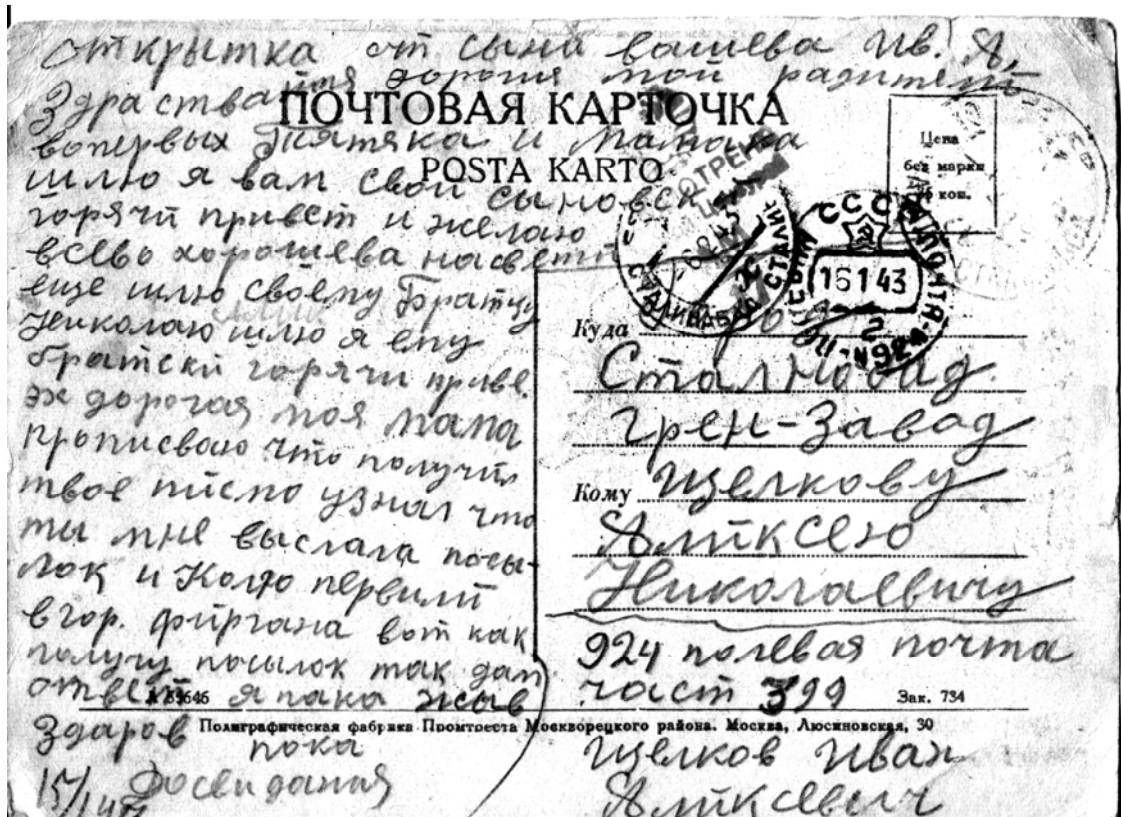 открытка от сына вашева Ив. А.
Здраствайтя дорогия мой радители
ПОЧТОВАЯ КАРТОЧКА
вопервых Тятяка и Мамака
POSTA KARTO
шлю я вам свой сыновск
горячи привет и желаю
всево хорошева насвети
еще шлю своему Братцу
Николаю шлю я ему
братски горячи приве.
эх дорогая моя мама
прописваю что получил
твое писмо узнал что
ты мне выслала посы-
лок и Колю первили
в гор. фиргана вот как
получу посылок так дам
ответ я пака жыв
Здаров пока
Досвиданя
Цена
без марки
коп.
СССР
ПОЧТА
16 1 43
СТАЛИНАБАД
Куда
Сталнобад.
Грен-Завад
Кому Щелкову
Аликсею
Николаевичу
924 полевая почта
част 399
Щелков Иван
Аликсевич
А 39646
Зак. 734
Полиграфическая фабрика Промтреста Москворецкого района. Москва, Люсиновская, 30